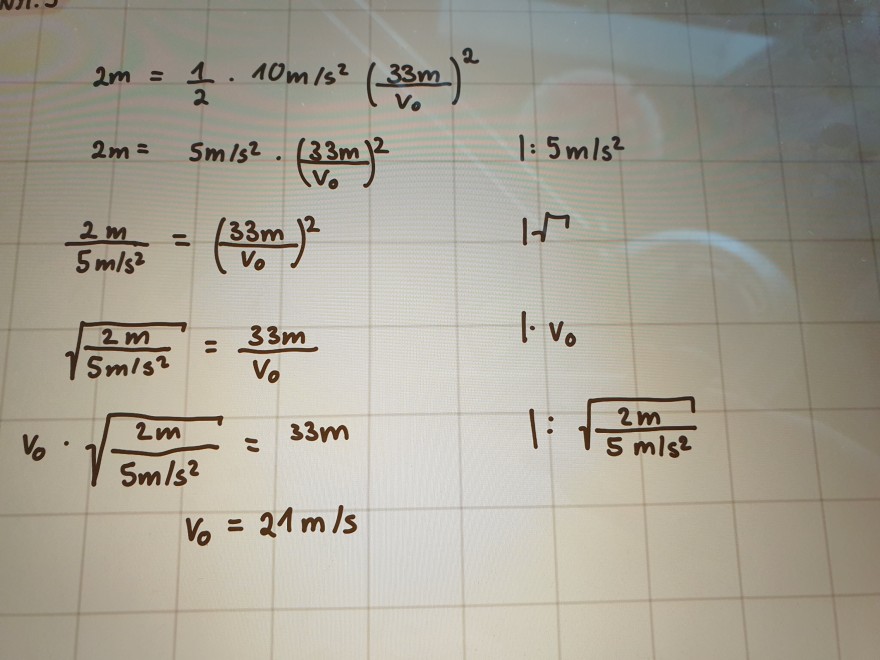 2m = 1/2 · 10m/s² (33m/v₀)²
2m = 5m/s² · (33m/v₀)² |: 5m/s²
2m/5m/s² = (33m/v₀)² |√
√(2m/5m/s²) = 33m/v₀ |· v₀
v₀ · √(2m/5m/s²) = 33m |: √(2m/5m/s²)
v₀ = 21m/s